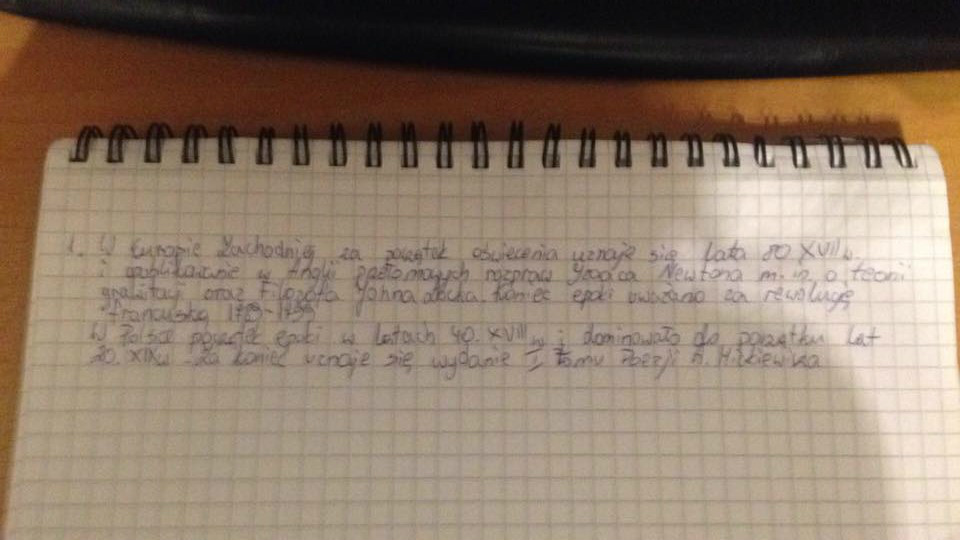 1. W Europie Zachodniej za początek oświecenia uznaje się lata 80 XVII w.
i opublikowanie w Anglii przełomowych rozpraw Newtona m.in. o teorii
grawitacji oraz filozofa Johna Locka. Koniec epoki uważano za rewolucję
francuską 1789-1799
W Polsce początek epoki w latach 40. XVIII w. i dominowało do początku lat
20. XIX w. za koniec uznaje się wydanie I tomu Poezji A. Mickiewicza